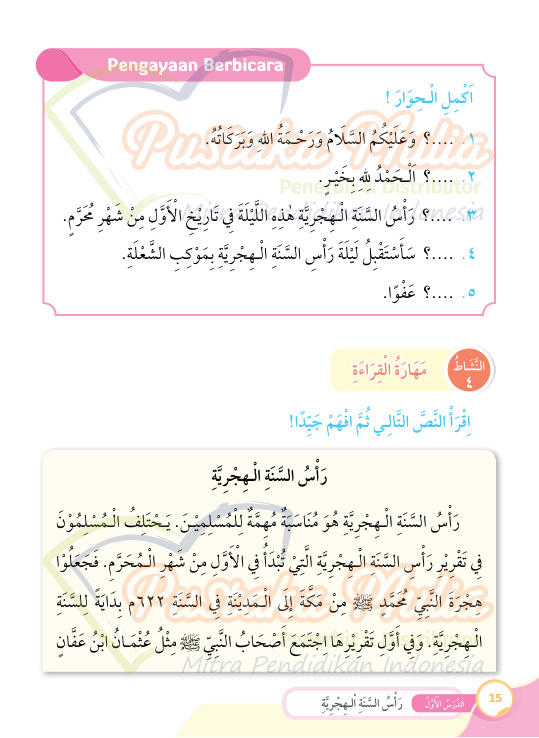 Pengayaan Berbicara
اَكْمِلِ الْـحِوَارَ !
١. ....؟ وَعَلَيْكُمُ السَّلَامُ وَرَحْـمَةُ اللهِ وَبَرَكَاتُهُ.
٢. ....؟ اَلْـحَمْدُ لِلهِ بِخَيْـرٍ.
٣. ....؟ رَأْسُ السَّنَةِ الْـهِجْرِيَّةِ هٰذِهِ اللَّيْلَةَ فِي تَارِيْخِ الْأَوَّلِ مِنْ شَهْرِ مُحَرَّمٍ.
٤. ....؟ سَأَسْتَقْبِلُ لَيْلَةَ رَأْسِ السَّنَةِ الْـهِجْرِيَّةِ بِمَوْكِبِ الشُّعْلَةِ.
٥. ....؟ عَفْوًا.
Pustaka Mulia
Penerbit & Distributor
Mitra Pendidikan Indonesia
النَّشَاطُ ٤
مَهَارَةُ الْقِرَاءَةِ
اِقْرَأْ النَّصَّ التَّالِـي ثُمَّ افْهَمْ جَيِّدًا!
رَأْسُ السَّنَةِ الْـهِجْرِيَّةِ
رَأْسُ السَّنَةِ الْـهِجْرِيَّةِ هُوَ مُنَاسَبَةٌ مُهِمَّةٌ لِلْمُسْلِمِيْـنَ. يَـخْتَلِفُ الْـمُسْلِمُوْنَ
فِي تَقْرِيْرِ رَأْسِ السَّنَةِ الْـهِجْرِيَّةِ الَّتِيْ تُبْدَأُ فِي الْأَوَّلِ مِنْ شَهْرِ الْـمُحَرَّمِ. فَجَعَلُوْا
هِجْرَةَ النَّبِيِّ مُحَمَّدٍ ﷺ مِنْ مَكَّةَ إِلَى الْـمَدِيْنَةِ فِي السَّنَةِ ٦٢٢م بِدَايَةً لِلسَّنَةِ
الْـهِجْرِيَّةِ. وَفِي أَوَّلِ تَقْرِيْرِهَا اجْتَمَعَ أَصْحَابُ النَّبِيِّ ﷺ مِثْلُ عُثْمَـانُ ابْنُ عَفَّانَ
Pustaka Mulia
Distributor
Mitra Pendidikan Indonesia
اَلدَّرْسُ الْأَوَّلُ رَأْسُ السَّنَةِ الْـهِجْرِيَّةِ
15